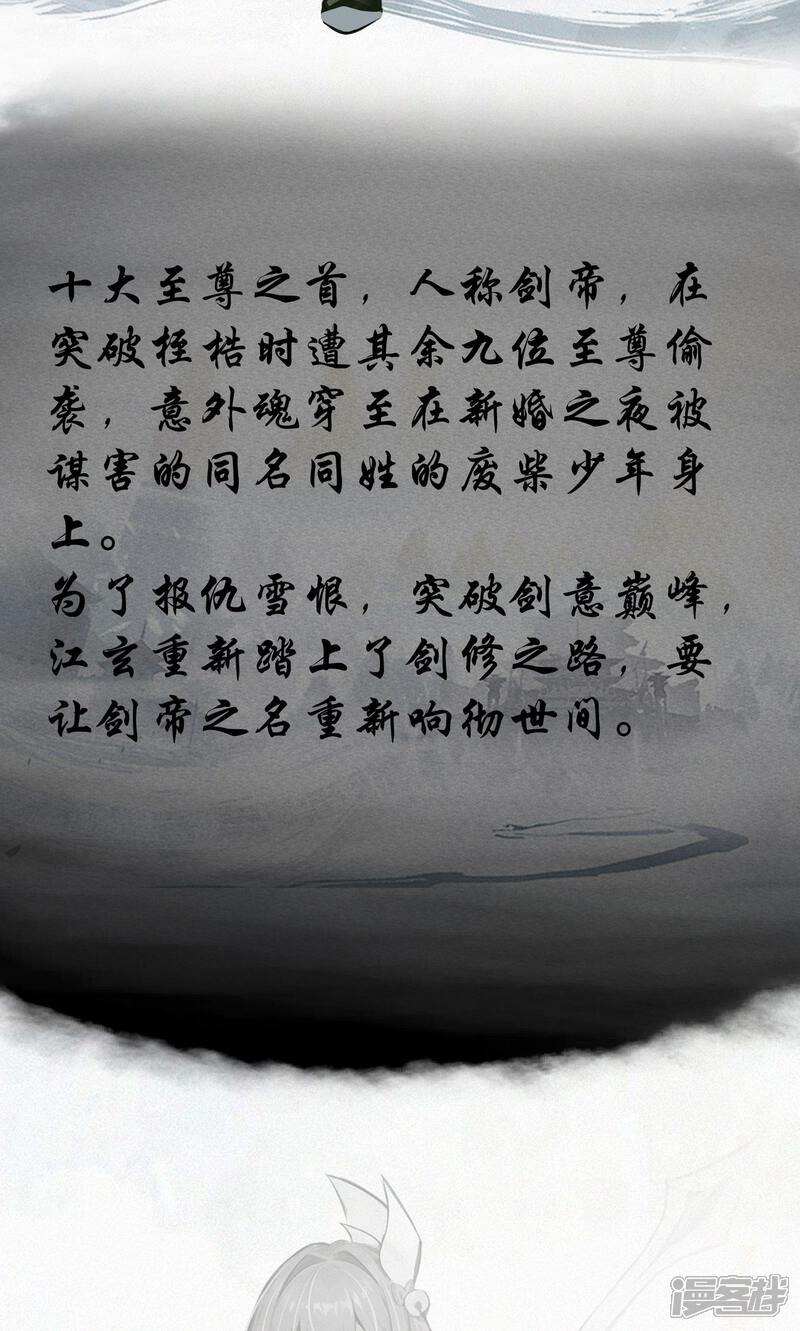 十大至尊之首，人称剑帝，在
突破桎梏时遭其余九位至尊偷
袭，意外魂穿至在新婚之夜被
谋害的同名同姓的废柴少年身
上。
为了报仇雪恨，突破剑意巅峰，
江玄重新踏上了剑修之路，要
让剑帝之名重新响彻世间。
漫客栈